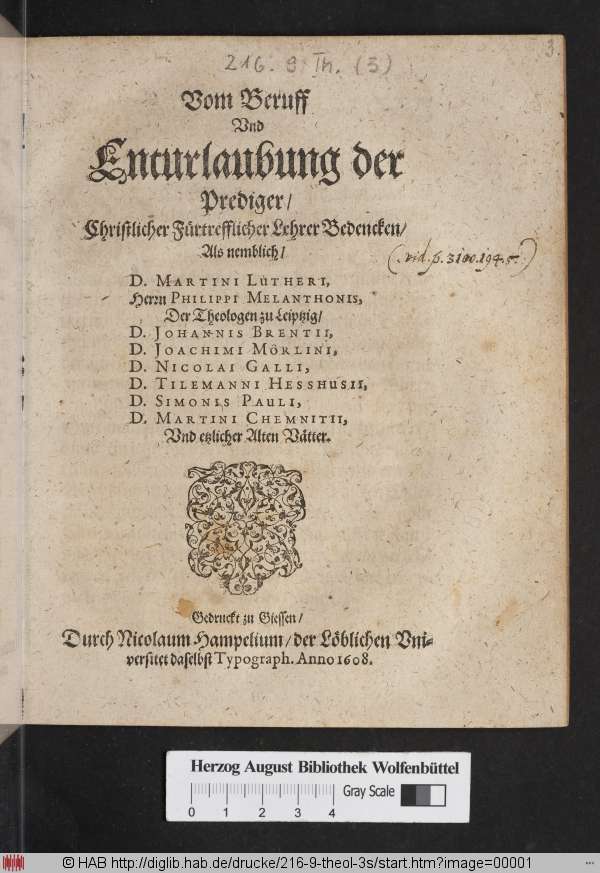 3.
216. 9 Th. (3)
Vom Beruff
Vnd
Enturlaubung der
Prediger/
Christlicher Fürtrefflicher Lehrer Bedencken/
Als nemblich/
(. vid. p. 3
D. MARTINI LUTHERI,
Herrn PHILIPPI MELANTHONIS,
Der Theologen zu Leiptzig/
D. JOHANNIS BRENTII,
D. JOACHIMI MÖRLINI,
D. NICOLAI GALLI,
D. TILEMANNI HESSHUSII,
D. SIMONIS PAULI,
D. MARTINI CHEMNITII,
Vnd etzlicher Alten Vätter.
Gedruckt zu Giessen/
Durch Nicolaum Hampelium/ der Löblichen Vni-
versitet daselbst Typograph. Anno 1608.
Herzog August Bibliothek Wolfenbüttel
Gray Scale
0 1 2 3 4
© HAB http://diglib.hab.de/drucke/216-9-theol-3s/start.htm?image=00001